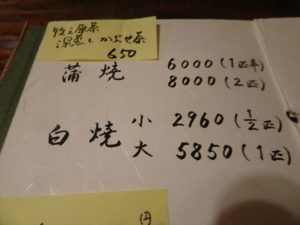 牧之原茶
深蒸しかぶせ茶
650
蒲焼 6000(1匹半)
8000(2匹)
白焼 小 2960(1/2匹)
大 5850(1匹)
円